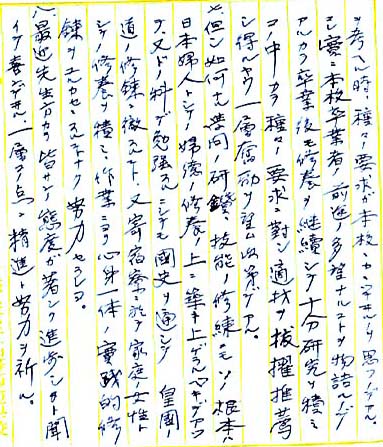 ヲ考ヘル時、種々ノ要求ガ本校ニカヽッテ居ルヿヲ思フノデアル。
コレ実ニ本校卒業者ノ前途ノ多望ナルコトヲ物語ルノデ
アルカラ卒業後モ修養ヲ継続シテ十分研究ヲ積ミ
コノ中カラ種々ノ要求ニ対シ適材ヲ抜擢推薦
シ得ルヤウ一層奮励ヲ望ム次第デアル。
七、但シ如何ナル学問ノ研鑽モ技能ノ修練モソノ根本ハ
日本婦人トシテノ婦徳ノ修養ノ上ニ築キ上ゲラルベキデアッ
テ、又ドノ科デ勉強スルニシテモ国史ヲ通シテ皇国ノ
道ノ修練ニ徹スルト、又寄宿寮ニ於テ家庭女性ト
シテノ修養ヲ積ミ、作業ニヨル心身一体ノ実践的修
錬ヲユルカセニスルコトナク努力セラレヨ。
八、最近先生方カラ皆サンノ態度ガ著シク進歩シタト聞
イテ喜ンデヰルガ一層コノ点ニ精進ト努力ヲ祈ル。